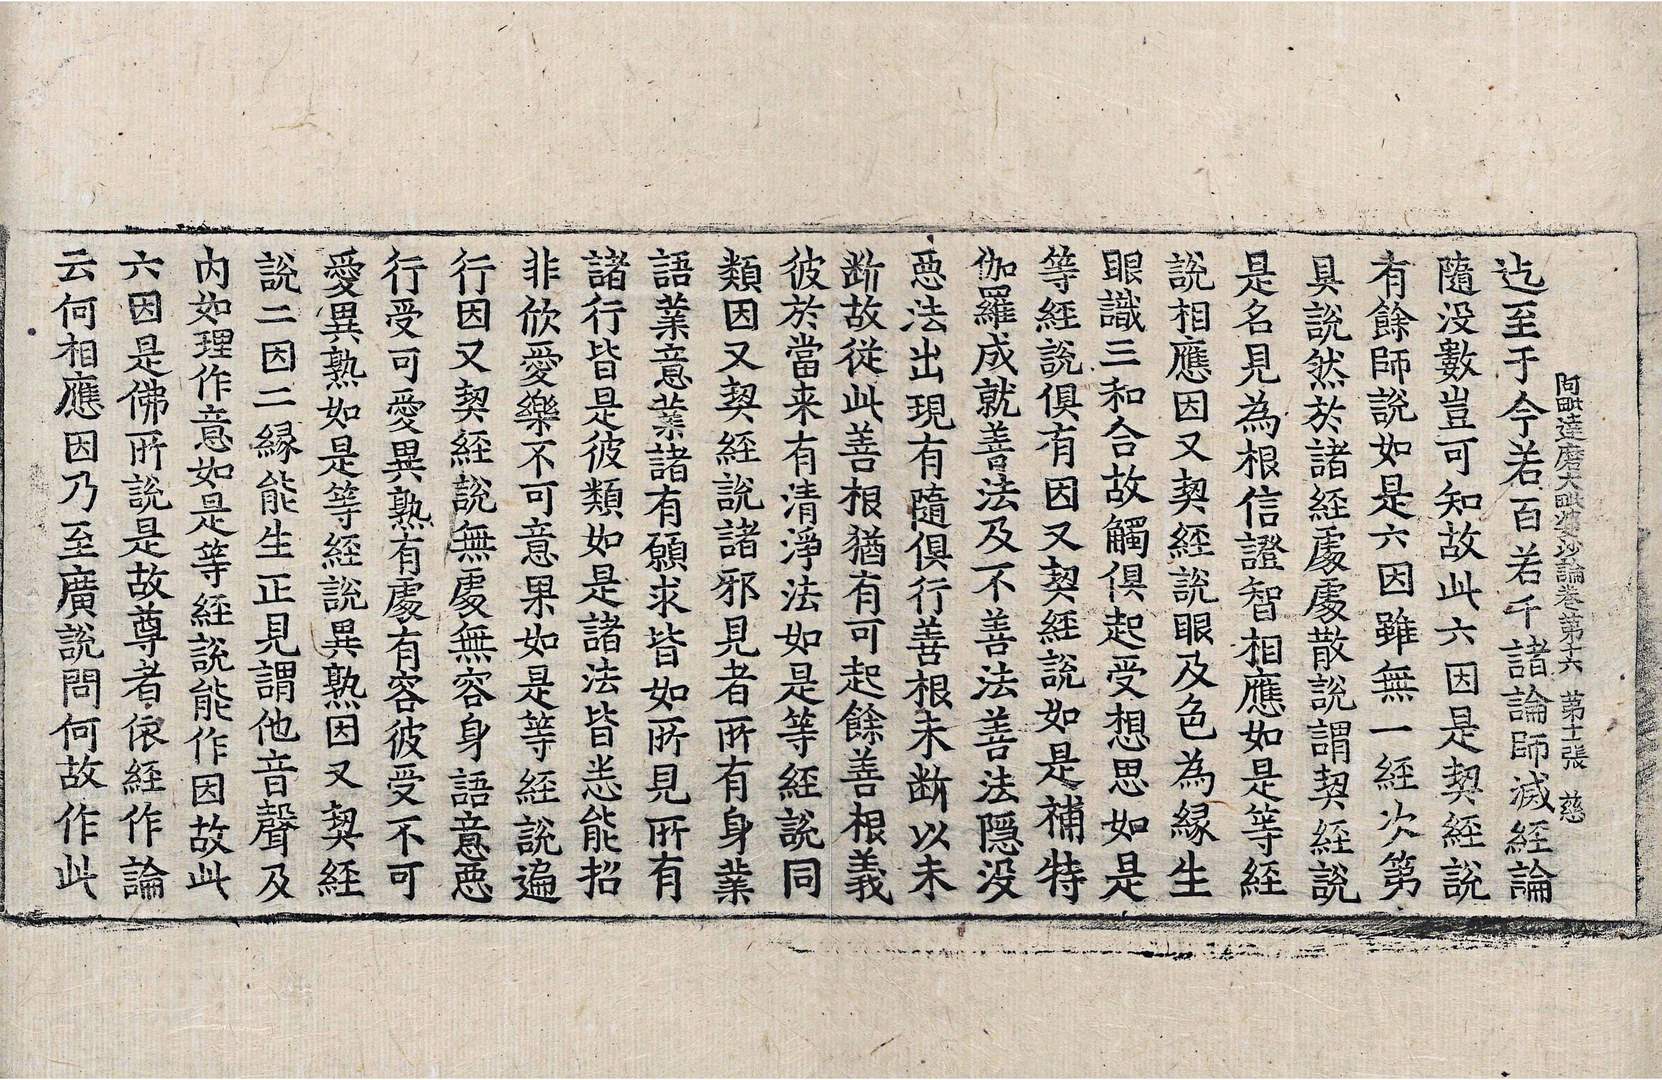 阿毗達磨大毗婆沙論卷第十六　第十張　慈
迄至于今若百若千諸論師滅經論
隨沒數豈可知故此六因是契經說
有餘師說如是六因雖無一經次第
具說然於諸經處處散說謂契經說
是名見為根信證智相應如是等經
說相應因又契經說眼及色為緣生
眼識三和合故觸俱起受想思如是
等經說俱有因又契經說如是補特
伽羅成就善法及不善法善法隱沒
惡法出現有隨俱行善根未斷以未
斷故從此善根猶有可起餘善根義
彼於當来有清淨法如是等經說同
類因又契經說諸邪見者所有身業
語業意業諸有願求皆如所見所有
諸行皆是彼類如是諸法皆悉能招
非欣愛樂不可意果如是等經說遍
行因又契經說無處無容身語意惡
行受可愛異熟有處有容彼受不可
愛異熟如是等經說異熟因又契經
說二因二緣能生正見謂他音聲及
內如理作意如是等經說能作因故此
六因是佛所說是故尊者依經作論
云何相應因乃至廣說問何故作此